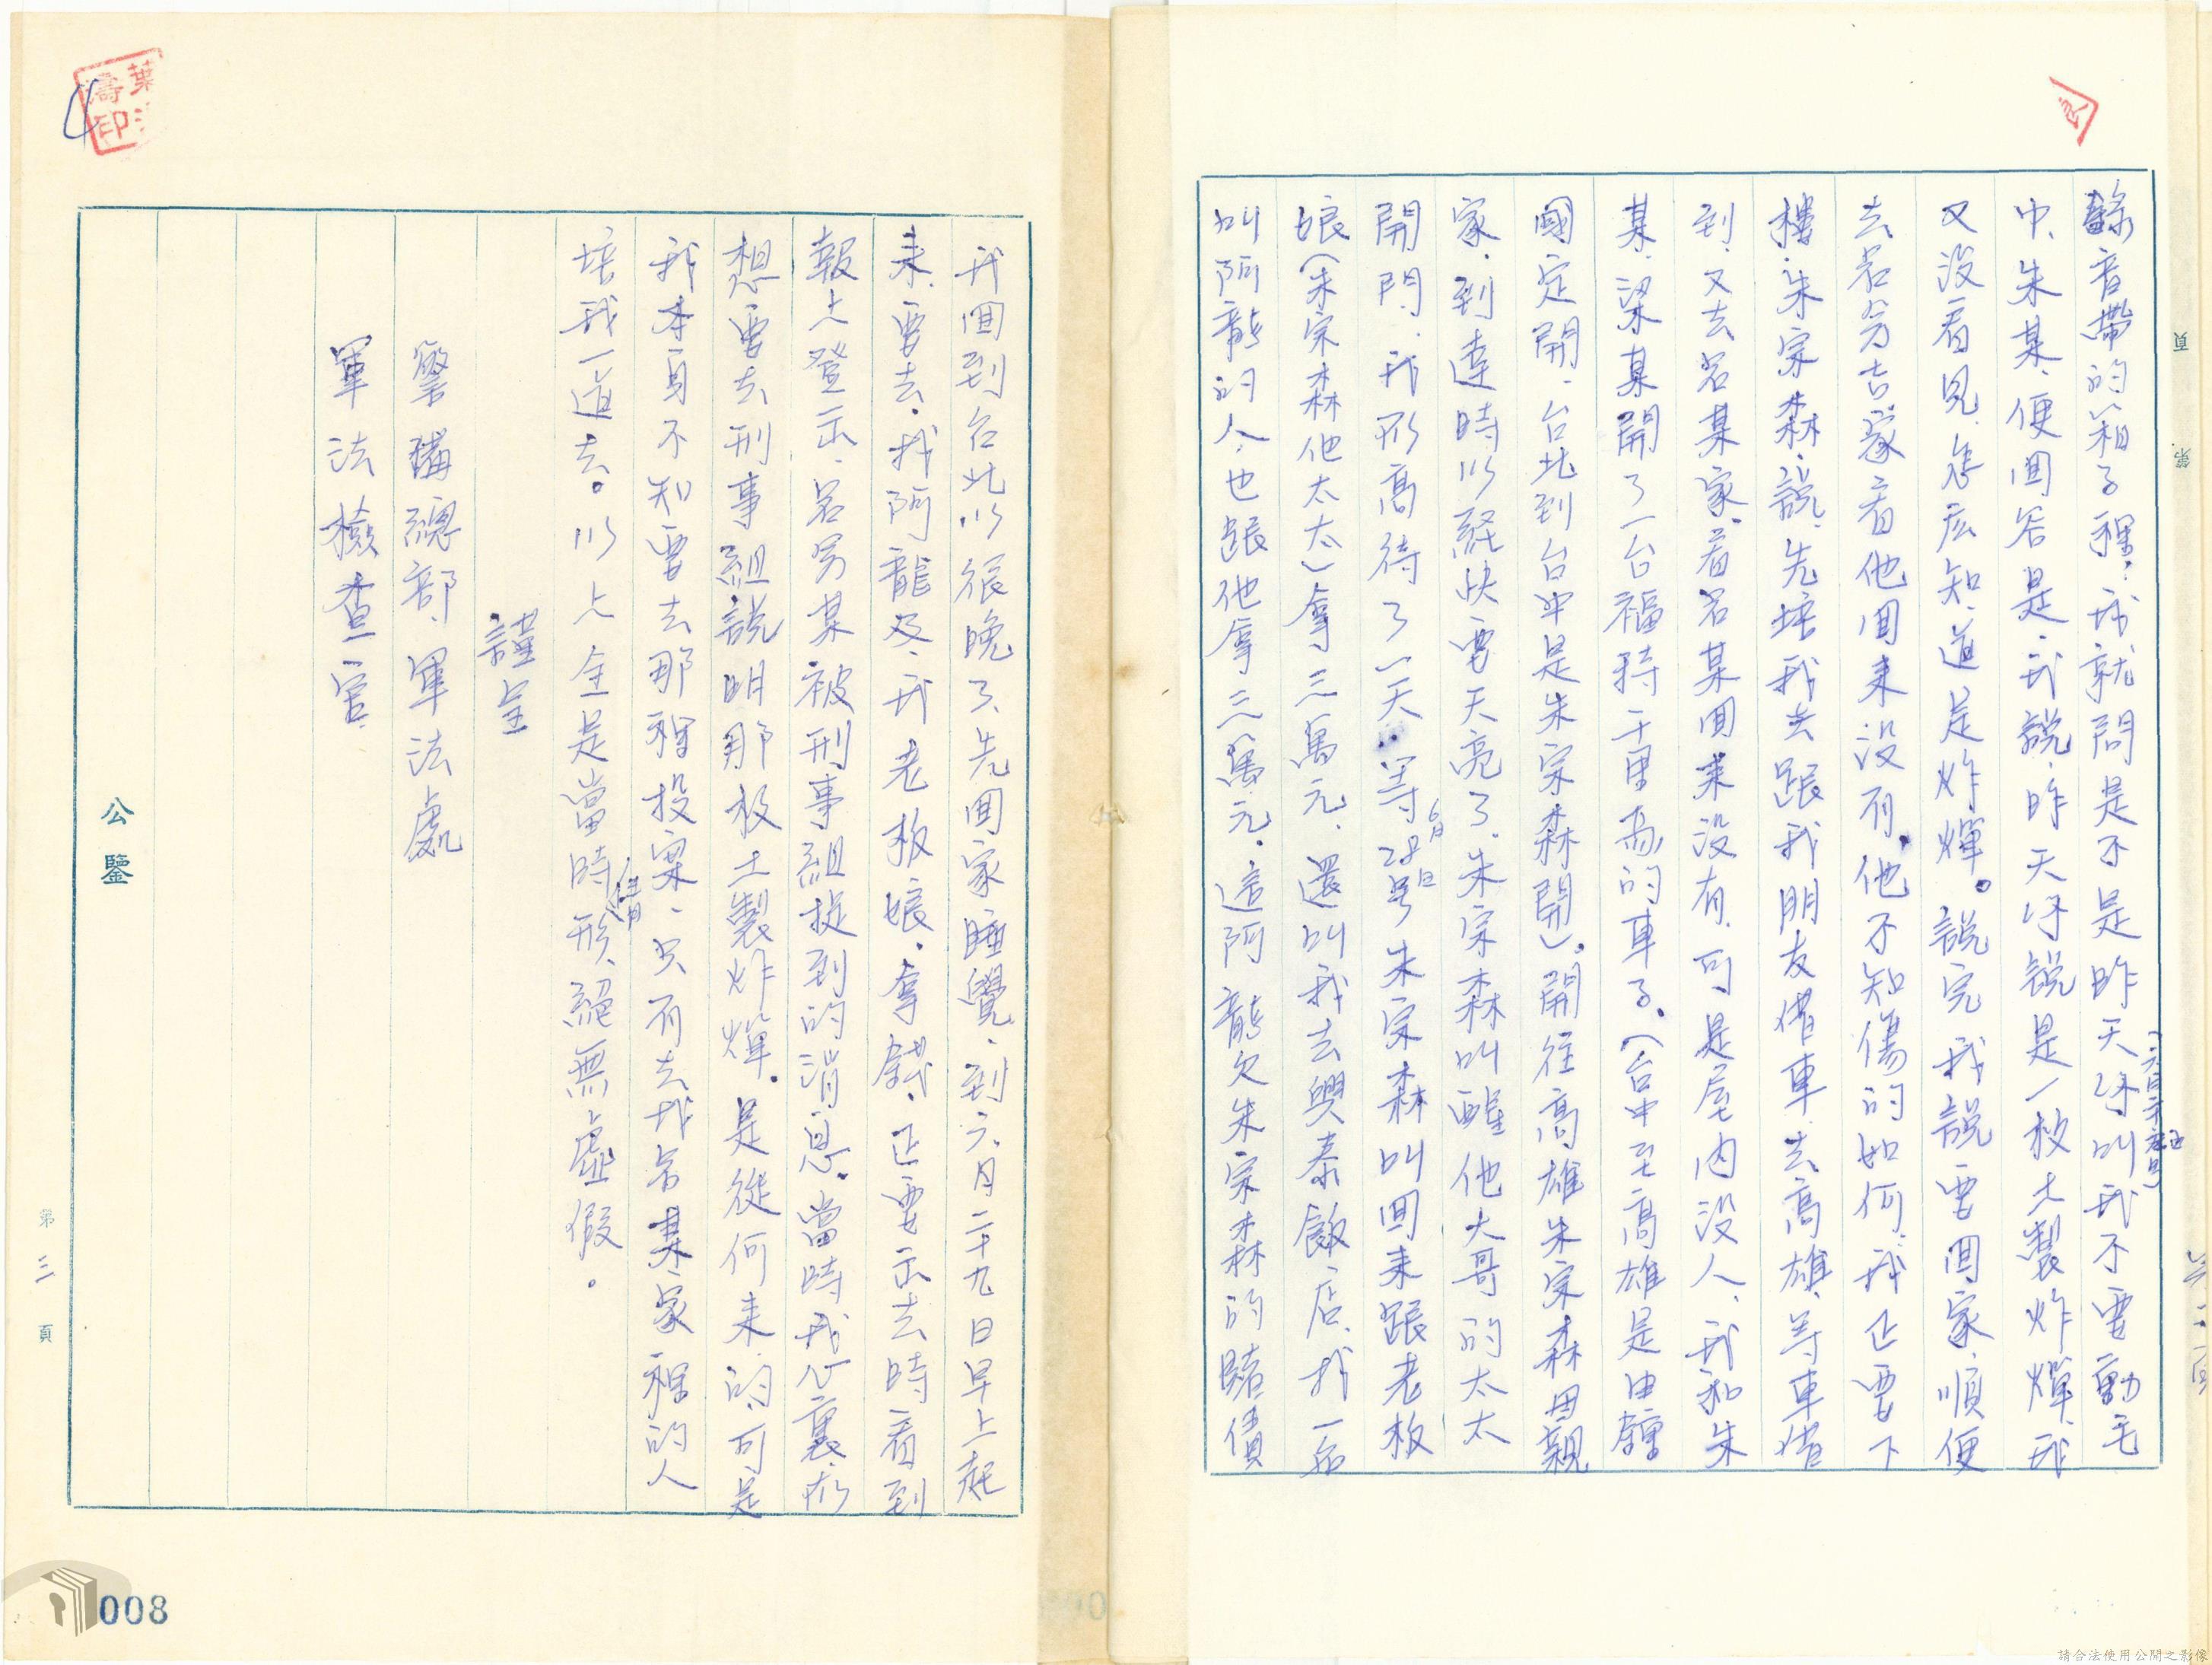 錄音帶的箱子裡．我就問是不是昨天你叫我不要動毛
中、朱某、便囬答是．我說．昨天你說是一枚土製炸燀、我
又没看見、怎么知、道是炸燀。說完我說要囬家．順便
去呂另吉家看他囬來没有．他不知傷的如何．我正要下
樓．朱宗森．說．先培我去跟我朋友借車．去高雄．等車借
到．又去呂某家．看呂某囬來没有．可是屋內没人、我和朱
某．梁某開了一台福特千里馬的車子。（台中至高雄是由鍾
國定開．台北到台中是朱宗森開）．開往高雄朱宗森母親
家．到達時以經快要天亮了．朱宗森叫醒他大哥的太太
開門．我形高待了一天
6月
等28号
日
朱宗森叫囬來跟老板
娘（朱宗森他太太）拿三萬元．還叫我去興泰飯店．找一名
叫阿龍的人．也跟他拿三萬元．這阿龍欠朱宗森的賭債
我囬到台北以很晚了．先囬家睡覺．到六月二十九日早上起
來．要去．找阿龍及．我老板娘．拿錢．正要出去時看到
報上登出．呂另某被刑事組捉到的消息．當時我心裏
想要去刑事組說明那枚土製炸燀．是從何來的．可是
我本身不知要去那裡投案．只有去找呂某家裡的人
培我一道去。以上全是當時
情
形．絕無虛假。
謹呈
警備總部．軍法處
軍法檢查官．
公鑒
第三頁
008
頁
第
葉
濤印
請合法使用公開之影像